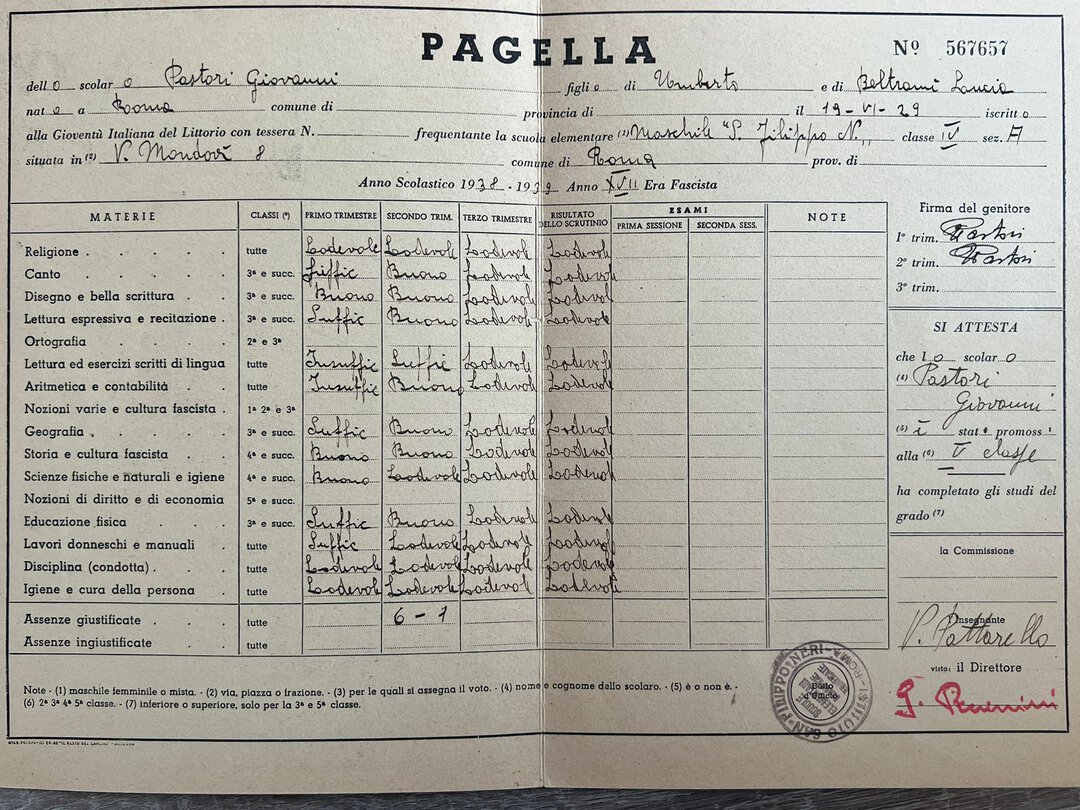 PAGELLA
Nº 567657
dell o scolar o Pastori Giovanni figli o di Umberto e di Beltrami Lucia
nat o a Roma comune di provincia di il 19-VI-29 iscritt o
alla Gioventù Italiana del Littorio con tessera N. frequentante la scuola elementare (1) Maschile "S. Filippo N." classe IV sez. A
situata in (2) V. Mondovì 8 comune di Roma prov. di
Anno Scolastico 1938-1939 Anno XVII Era Fascista
MATERIE CLASSI (³) PRIMO TRIMESTRE SECONDO TRIM. TERZO TRIMESTRE RISULTATO DELLO SCRUTINIO ESAMI PRIMA SESSIONE SECONDA SESS. NOTE
Religione tutte Lodevole Lodevole Lodevole Lodevol
Canto 3ª e succ. Suffic Buono Lodevol Lodevol
Disegno e bella scrittura 3ª e succ. Buono Buono Lodevole Lodevol
Lettura espressiva e recitazione 3ª e succ. Suffic Buono Lodevole Lodevole
Ortografia 2ª e 3ª
Lettura ed esercizi scritti di lingua tutte Insuffic Suffic Lodevole Lodevole
Aritmetica e contabilità tutte Insuffic Buono Lodevole Lodevole
Nozioni varie e cultura fascista 1ª 2ª e 3ª
Geografia 3ª e succ. Suffic Buono Lodevole Lodevol
Storia e cultura fascista 4ª e succ. Buono Buono Lodevole Lodevol
Scienze fisiche e naturali e igiene 4ª e succ. Buono Lodevole Lodevole Lodevol
Nozioni di diritto e di economia 5ª e succ.
Educazione fisica 3ª e succ. Suffic Buono Lodevole Lodevol
Lavori donneschi e manuali tutte Suffic Lodevole Lodevole Lodevole
Disciplina (condotta) tutte Lodevole Lodevole Lodevole Lodevol
Igiene e cura della persona tutte Lodevole Lodevole Lodevole Lodevole
Assenze giustificate tutte 6-1
Assenze ingiustificate tutte
Note - (1) maschile femminile o mista. - (2) via, piazza o frazione. - (3) per le quali si assegna il voto. - (4) nome e cognome dello scolaro. - (5) è o non è. -
(6) 2ª 3ª 4ª 5ª classe. - (7) inferiore o superiore, solo per la 3ª e 5ª classe.
Firma del genitore
1º trim. Pastori
2º trim. Pastori
3º trim.
SI ATTESTA
che l o scolar o
(4) Pastori
Giovanni
(5) è stat o promoss
alla (6) V classe
ha completato gli studi del
grado (7)
la Commissione
l'Insegnante
V. Pattarello
visto: il Direttore
ISTITUTO SAN FILIPPO NERI - ROMA
Bollo
d'Ufficio